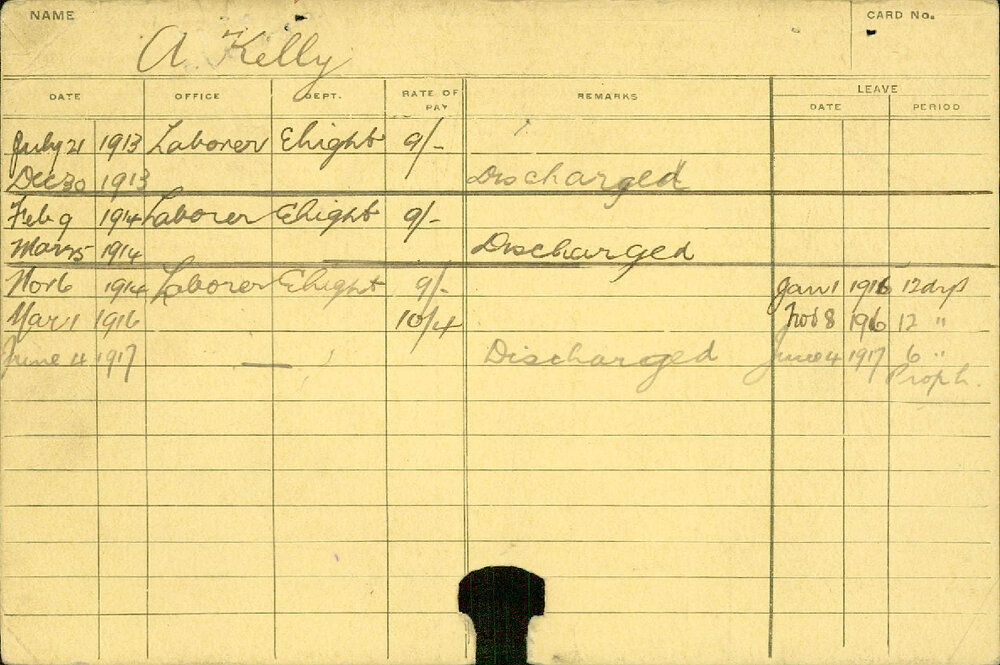 NAME
CARD No.
A. Kelly
DATE OFFICE DEPT. RATE OF PAY REMARKS LEAVE
DATE PERIOD
July 21 1913 Laborer Elight 9/-
Dec 30 1913 Discharged
Feb 9 1914 Laborer Elight 9/-
Mar 25 1914 Discharged
Nov 6 1914 Laborer Elight 9/- Jan 1 1916 12 dys
Mar 1 1916 10/4 8 1916 12 "
June 4 1917 — Discharged June 4 1917 6 "
Proph.